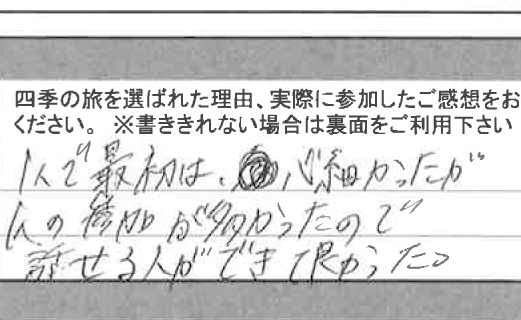 四季の旅を選ばれた理由、実際に参加したご感想をお
ください。 ※書ききれない場合は裏面をご利用下さい
1人で最初は、心細かったが
1人の参加が多かったので
話せる人ができて良かった。